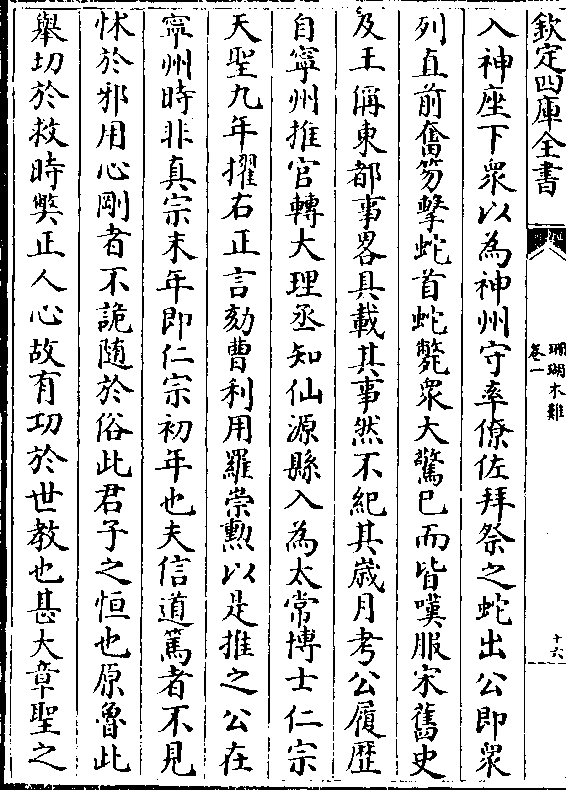 欽定四庫全書
珊瑚木難
卷一
十六
入神座下衆以為神州守率僚佐拜祭之蛇出公即衆
列直前奮笏擊蛇首蛇斃衆大驚已而皆嘆服宋舊史
及王偁東都事畧具載其事然不紀其歳月考公履歴
自寧州推官轉大理丞知仙源縣入為太常博士仁宗
天聖九年擢右正言劾曹利用羅崇勲以是推之公在
寧州時非真宗末年即仁宗初年也夫信道篤者不見
怵於邪用心剛者不詭随於俗此君子之恒也原魯此
舉切於救時弊正人心故有功於世教也甚大章聖之